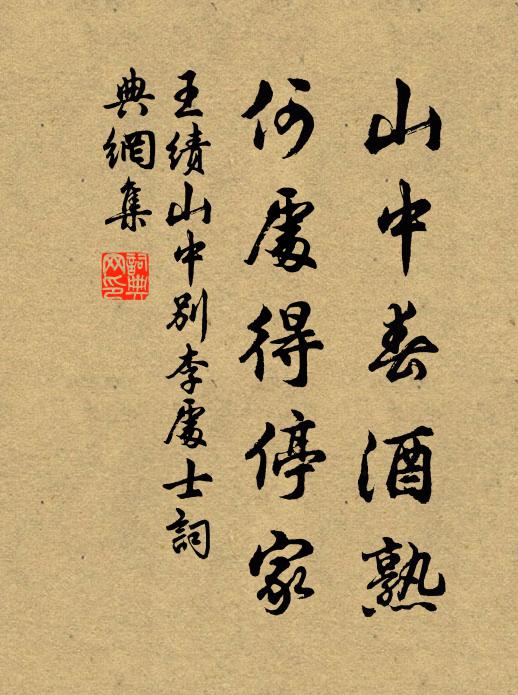 山中春酒熟
何處得停家
王績山中別李處士詞
典網集
詞典
網印